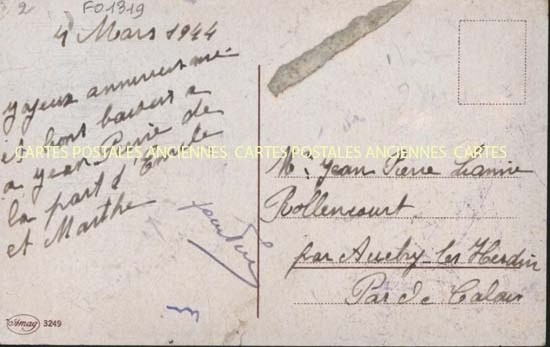 2
FO1319
4 Mars 1944
joyeux anniversaire
et bons baisers a
a jean Pierre de
la part d'Emile
et Marthe
CARTES POSTALES ANCIENNES CARTES POSTALES ANCIENNES CARTES POSTALES ANCIENNES
Mr. Jean Pierre
Rollencourt
par Auchy-les-Hesdin
Pas de Calais
3249